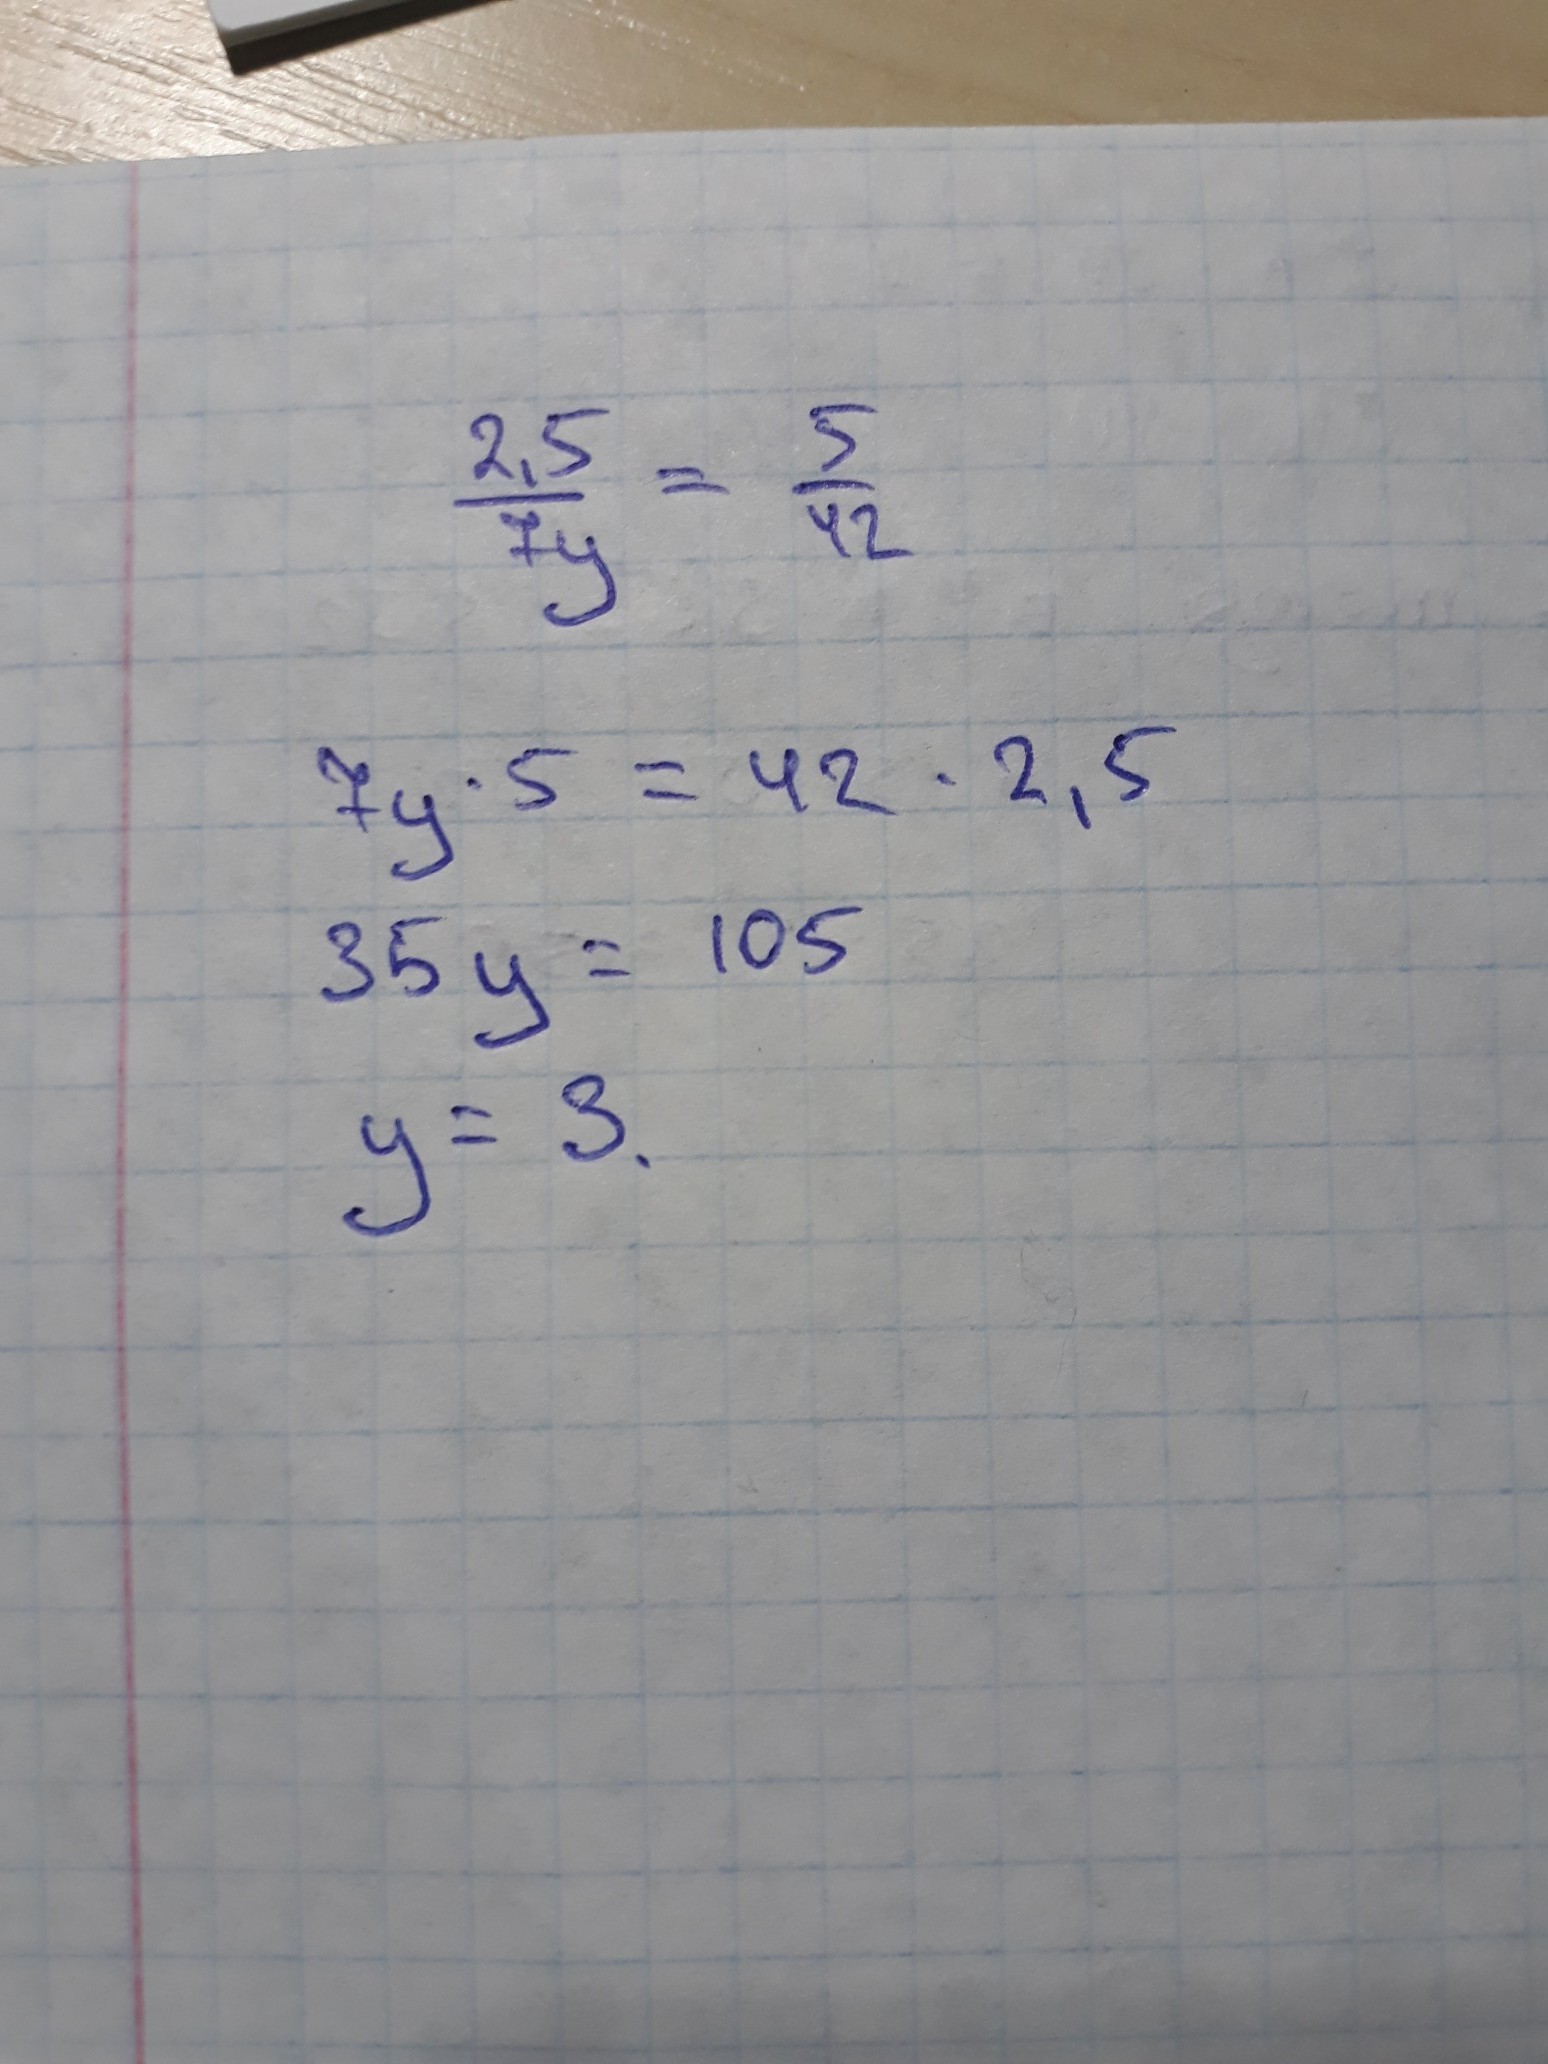 2,5/7y = 5/42
7y · 5 = 42 · 2,5
35y = 105
y = 3.